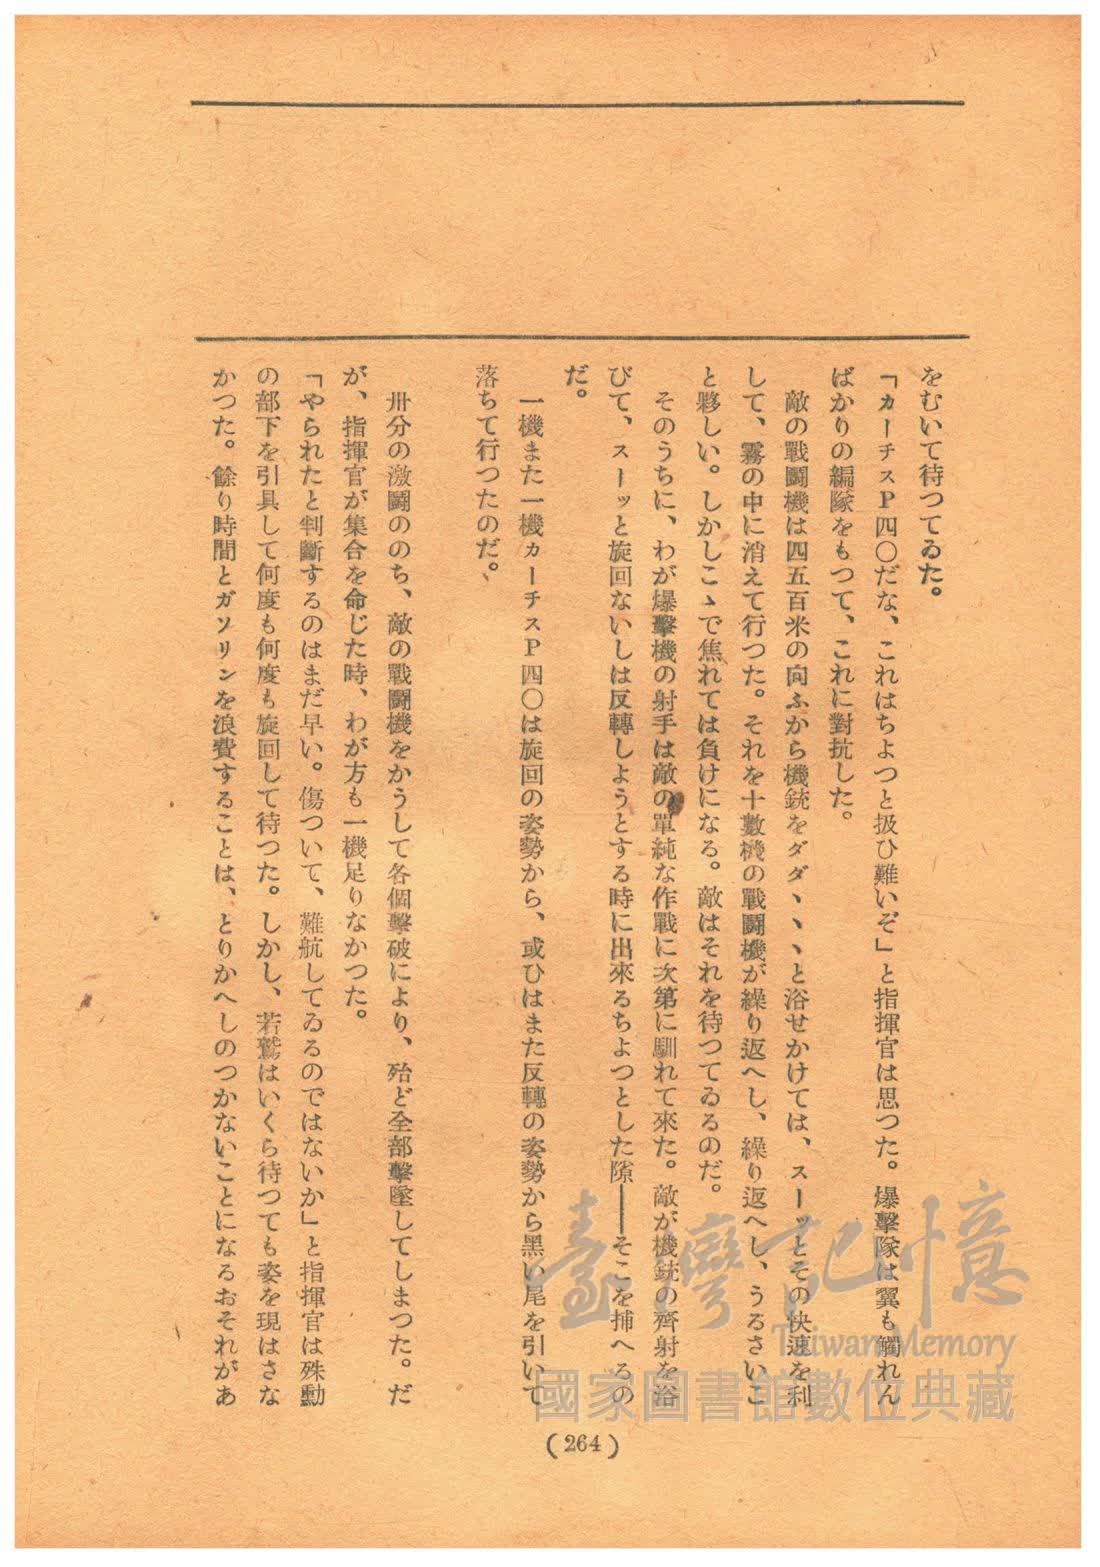 をむいて待つてゐた。
「カーチスP四〇だな、これはちよつと扱ひ難いぞ」と指揮官は思つた。爆擊隊は翼も觸れん
ばかりの編隊をもつて、これに對抗した。
敵の戰鬪機は四五百米の向ふから機銃をダダヽヽヽと浴せかけては、スーッとその快速を利
して、霧の中に消えて行つた。それを十數機の戰鬪機が繰り返へし、繰り返へし、うるさいこ
と夥しい。しかしこゝで焦れては負けになる。敵はそれを待つてゐるのだ。
そのうちに、わが爆擊機の射手は敵の單純な作戰に次第に馴れて來た。敵が機銃の齊射を浴
びて、スーッと旋回ないしは反轉しようとする時に出來るちよつとした隙――そこを捕へるの
だ。
一機また一機カーチスP四〇は旋回の姿勢から、或ひはまた反轉の姿勢から黑い尾を引いて
落ちて行つたのだ。
卅分の激鬪ののち、敵の戰鬪機をかうして各個擊破により、殆ど全部擊墜してしまつた。だ
が、指揮官が集合を命じた時、わが方も一機足りなかつた。
「やられたと判斷するのはまだ早い。傷ついて、難航してゐるのではないか」と指揮官は殊勳
の部下を引具して何度も何度も旋回して待つた。しかし、若鷲はいくら待つても姿を現はさな
かつた。餘り時間とガソリンを浪費することは、とりかへしのつかないことになるおそれがあ
(264)
臺灣記憶
Taiwan Memory
國家圖書館數位典藏